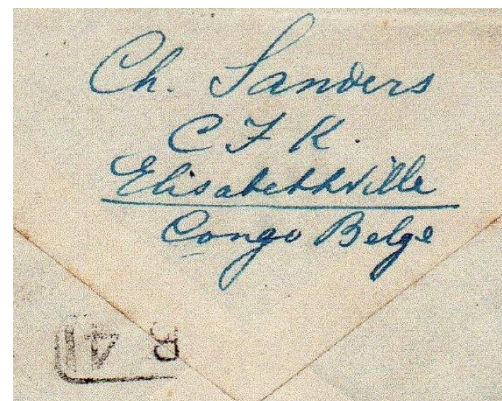 Ch. Sanders
C F K.
Elisabethville
Congo Belge
R 41